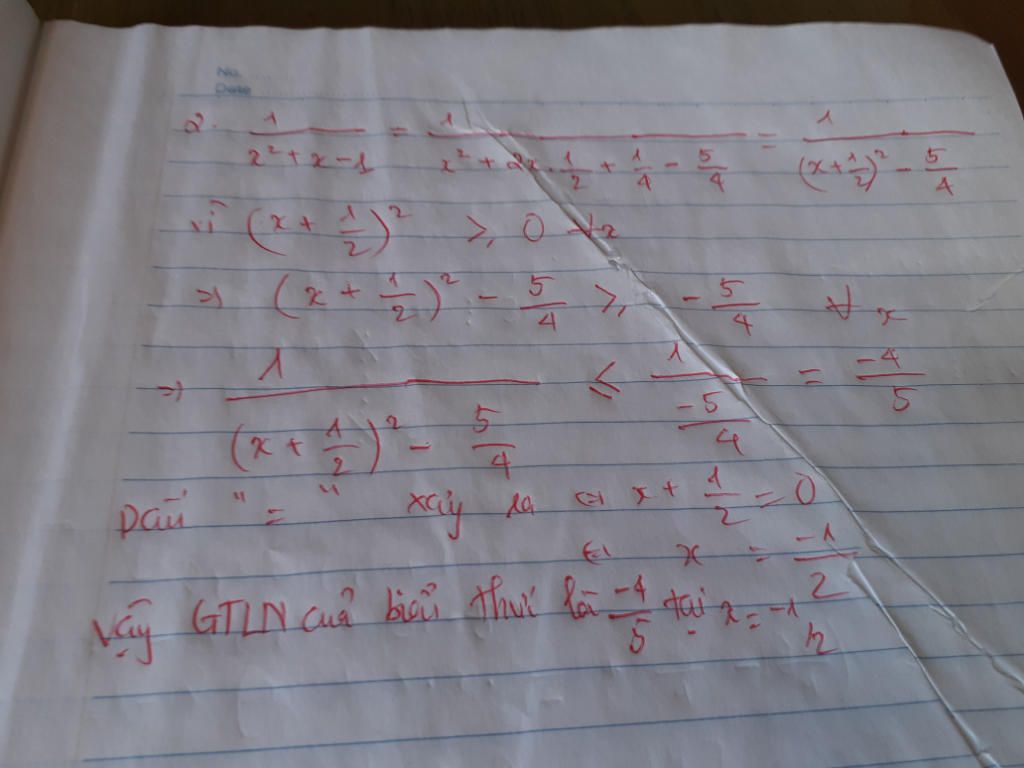 No.
Date
2. 1/(x² + x - 1) = 1/(x² + 2x . 1/2 + 1/4 - 5/4) = 1/((x + 1/2)² - 5/4)
vì (x + 1/2)² ≥ 0 ∀x
=> (x + 1/2)² - 5/4 ≥ -5/4 ∀x
=> 1/((x + 1/2)² - 5/4) ≤ 1/(-5/4) = -4/5
Dấu "=" xảy ra <=> x + 1/2 = 0
<=> x = -1/2
Vậy GTLN của biểu thức là -4/5 tại x = -1/2